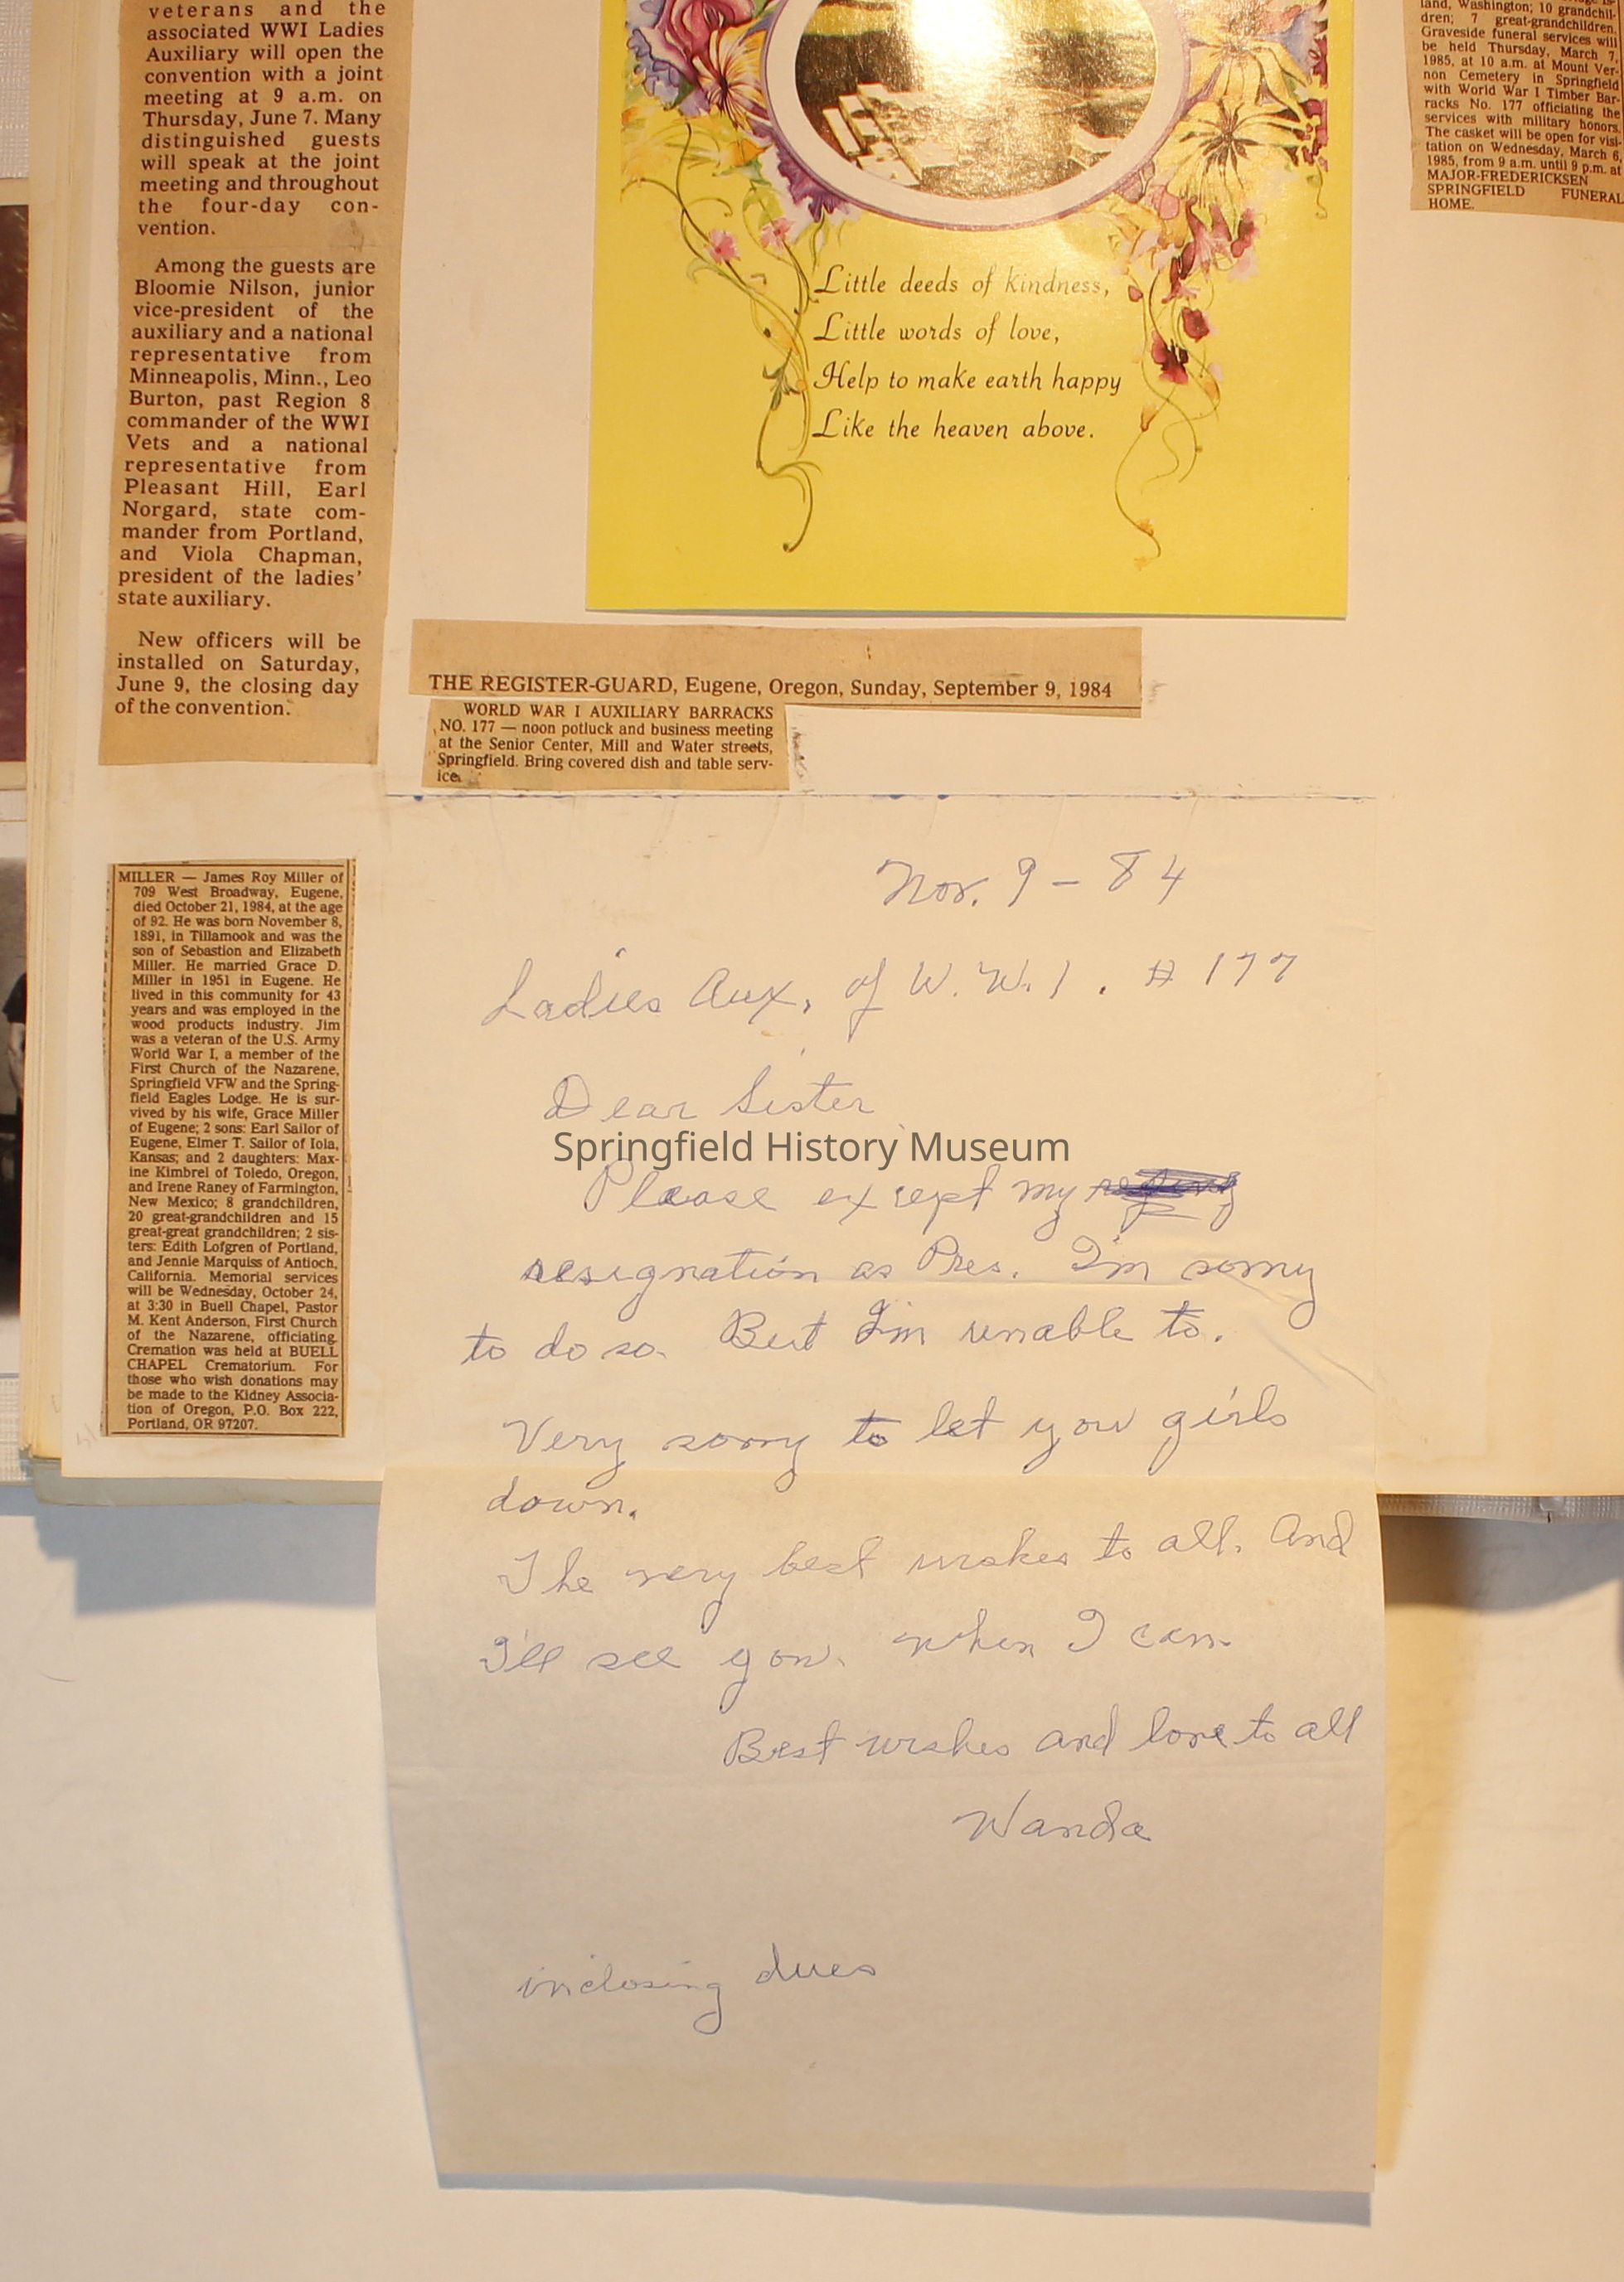 veterans and the
associated WWI Ladies
Auxiliary will open the
convention with a joint
meeting at 9 a.m. on
Thursday, June 7. Many
distinguished guests
will speak at the joint
meeting and throughout
the four-day con-
vention.
Among the guests are
Bloomie Nilson, junior
vice-president of the
auxiliary and a national
representative from
Minneapolis, Minn., Leo
Burton, past Region 8
commander of the WWI
Vets and a national
representative from
Pleasant Hill, Earl
Norgard, state com-
mander from Portland,
and Viola Chapman,
president of the ladies'
state auxiliary.
New officers will be
installed on Saturday,
June 9, the closing day
of the convention.
Little deeds of kindness,
Little words of love,
Help to make earth happy
Like the heaven above.
land, Washington; 10 grandchil-
dren; 7 great-grandchildren.
Graveside funeral services will
be held Thursday, March 7,
1985, at 10 a.m. at Mount Ver-
non Cemetery in Springfield
with World War I Timber Bar-
racks No. 177 officiating the
services with military honors.
The casket will be open for visi-
tation on Wednesday, March 6,
1985, from 9 a.m. until 9 p.m. at
MAJOR-FREDERICKSEN
SPRINGFIELD FUNERAL
HOME.
THE REGISTER-GUARD, Eugene, Oregon, Sunday, September 9, 1984
WORLD WAR I AUXILIARY BARRACKS
NO. 177 — noon potluck and business meeting
at the Senior Center, Mill and Water streets,
Springfield. Bring covered dish and table serv-
ice.
MILLER — James Roy Miller of
709 West Broadway, Eugene,
died October 21, 1984, at the age
of 92. He was born November 8,
1891, in Tillamook and was the
son of Sebastion and Elizabeth
Miller. He married Grace D.
Miller in 1951 in Eugene. He
lived in this community for 43
years and was employed in the
wood products industry. Jim
was a veteran of the U.S. Army
World War I, a member of the
First Church of the Nazarene,
Springfield VFW and the Spring-
field Eagles Lodge. He is sur-
vived by his wife, Grace Miller
of Eugene; 2 sons: Earl Sailor of
Eugene, Elmer T. Sailor of Iola,
Kansas; and 2 daughters: Max-
ine Kimbrel of Toledo, Oregon,
and Irene Raney of Farmington,
New Mexico; 8 grandchildren,
20 great-grandchildren and 15
great-great grandchildren; 2 sis-
ters: Edith Lofgren of Portland,
and Jennie Marquiss of Antioch,
California. Memorial services
will be Wednesday, October 24,
at 3:30 in Buell Chapel, Pastor
M. Kent Anderson, First Church
of the Nazarene, officiating.
Cremation was held at BUELL
CHAPEL Crematorium. For
those who wish donations may
be made to the Kidney Associa-
tion of Oregon, P.O. Box 222,
Portland, OR 97207.
Nov. 9 – 84
Ladies Aux, of W. W. 1. # 177
Dear Sister
Springfield History Museum
Please except my
resignation as Pres. I'm sorry
to do so. But I'm unable to.
Very sorry to let you girls
down.
The very best wishes to all. And
I'll see you. when I can.
Best wishes and love to all
Wanda
inclosing dues